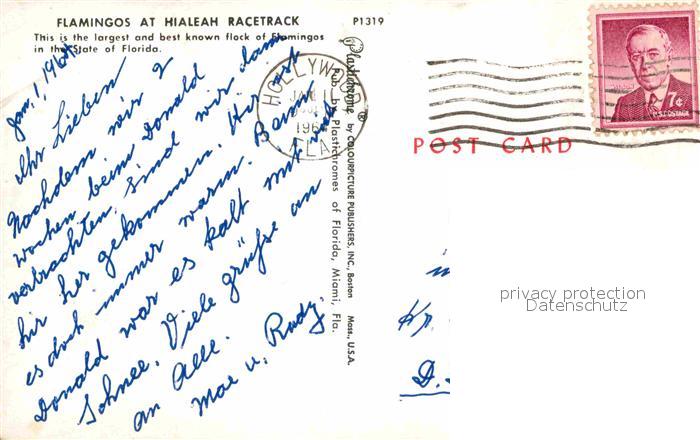 FLAMINGOS AT HIALEAH RACETRACK
P1319
This is the largest and best known flock of Flamingos
in the State of Florida.
Jan, 1, 1964
Ihr Lieben
Nachdem wir 2
wochen beim Donald
verbrachten, sind wir dann
hir her gekommen. Hir ist
es doch immer warm. Beim
Donald war es kalt mit
Schnee. Viele grüße an
an Alle.
Mae u. Rudy.
Plastichrome ® by COLOURPICTURE PUBLISHERS, INC., Boston Mass., U.S.A.
Pub. by Plastichromes of Florida, Miami, Fla.
HOLLYWOOD
JAN
196
FLA
7¢
U.S. POSTAGE
POST CARD
Kr.
D.
privacy protection
Datenschutz